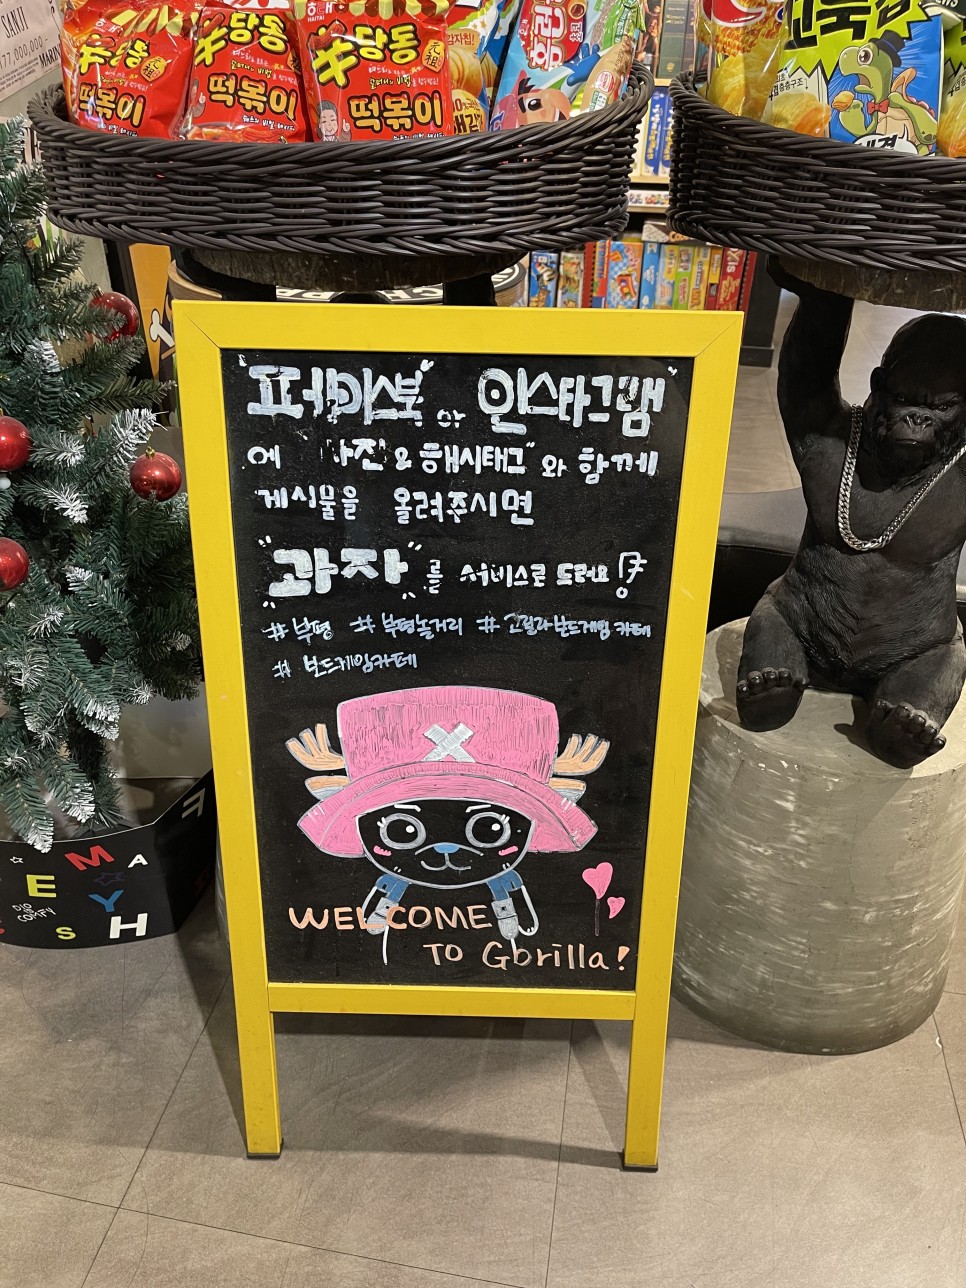 SANJI
77,000,000-
MARINE
해태
신당동
떡볶이
해태
신당동
떡볶이
해태
신당동
떡볶이
감자칩!
"페이스북" 이나 "인스타그램"
에 사진 & 해시태그 와 함께
게시물을 올려주시면
"과자" 를 서비스로 드려요!
#부평 #부평놀거리 #고릴라보드게임카페
#보드게임카페
WELCOME
TO Gorilla!
M A
E Y
S H